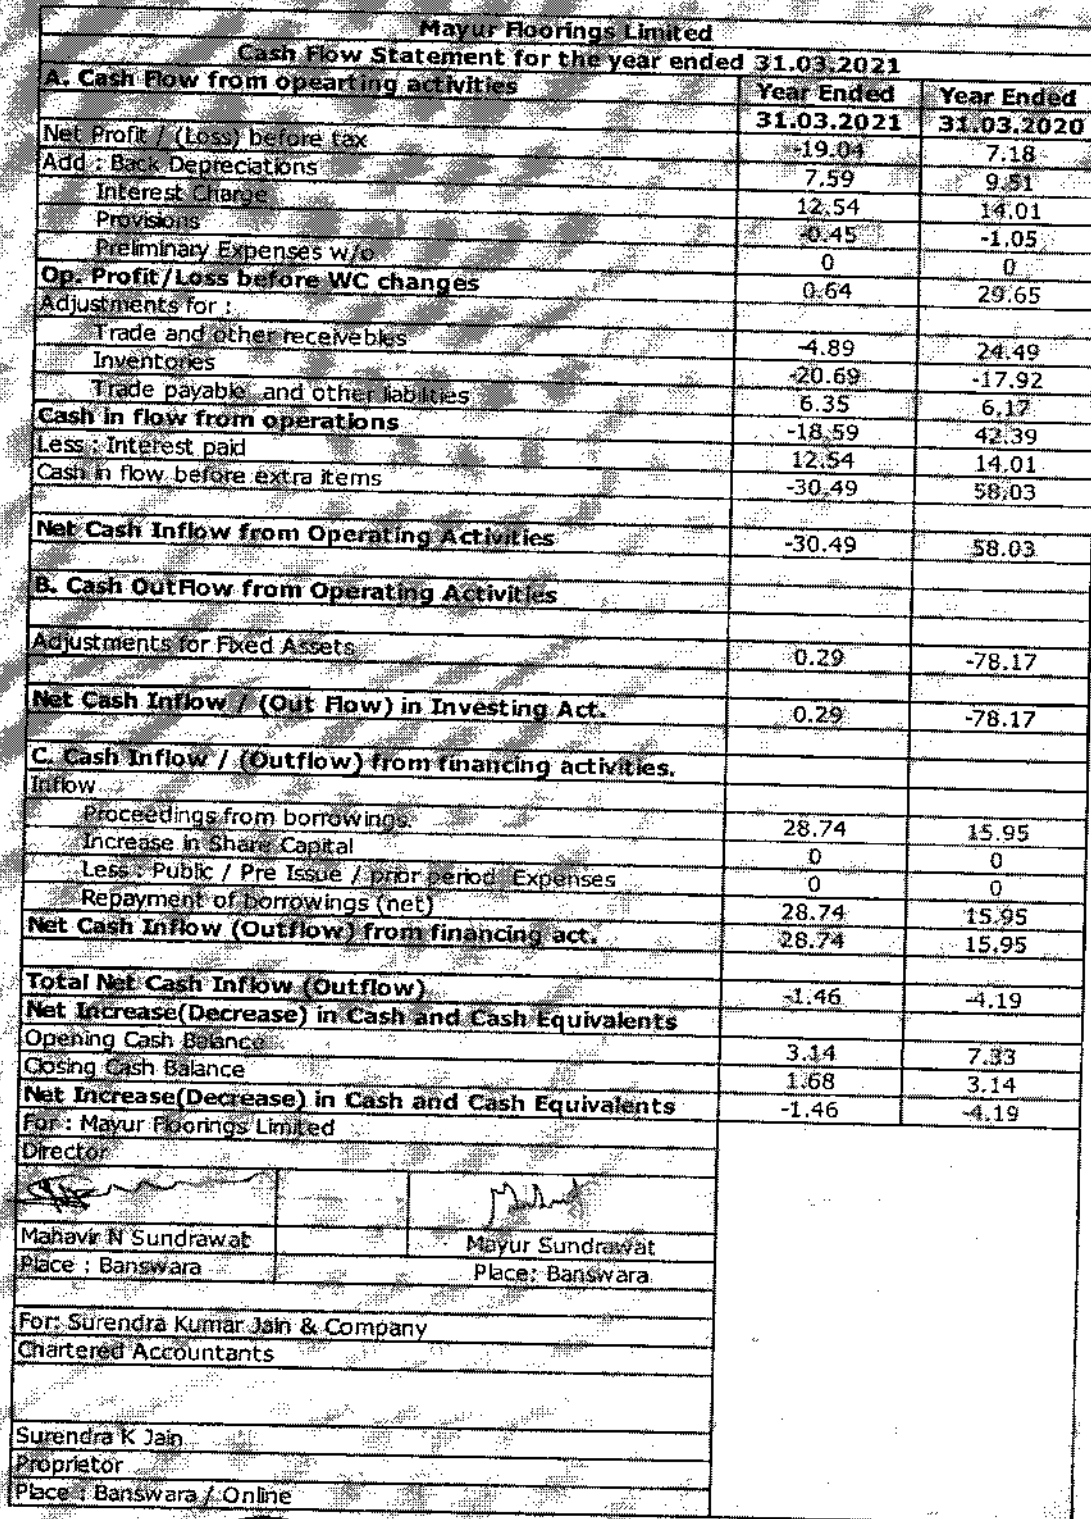 Mayur Floorings Limited
Cash Flow Statement for the year ended 31.03.2021
A. Cash Flow from opearting activities Year Ended Year Ended
31.03.2021 31.03.2020
Net Profit / (Loss) before tax -19.04 7.18
Add : Back Depreciations 7.59 9.51
Interest Charge 12.54 14.01
Provisions -0.45 -1.05
Preliminary Expenses w/o 0 0
Op. Profit/Loss before WC changes 0.64 29.65
Adjustments for :
Trade and other receivebles -4.89 24.49
Inventories -20.69 -17.92
Trade payable and other liabilities 6.35 6.17
Cash in flow from operations -18.59 42.39
Less : Interest paid 12.54 14.01
Cash in flow before extra items -30.49 58.03
Net Cash Inflow from Operating Activities -30.49 58.03
B. Cash OutFlow from Operating Activities
Adjustments for Fixed Assets 0.29 -78.17
Net Cash Inflow / (Out Flow) in Investing Act. 0.29 -78.17
C. Cash Inflow / (Outflow) from financing activities.
Inflow
Proceedings from borrowings. 28.74 15.95
Increase in Share Capital 0 0
Less : Public / Pre Issue / prior period Expenses 0 0
Repayment of borrowings (net) 28.74 15.95
Net Cash Inflow (Outflow) from financing act. 28.74 15.95
Total Net Cash Inflow (Outflow) -1.46 -4.19
Net Increase(Decrease) in Cash and Cash Equivalents
Opening Cash Balance 3.14 7.33
Closing Cash Balance 1.68 3.14
Net Increase(Decrease) in Cash and Cash Equivalents -1.46 -4.19
For : Mayur Floorings Limited
Director
Mahavir N Sundrawat Mayur Sundrawat
Place : Banswara Place: Banswara
For: Surendra Kumar Jain & Company
Chartered Accountants
Surendra K Jain
Proprietor
Place : Banswara / Online